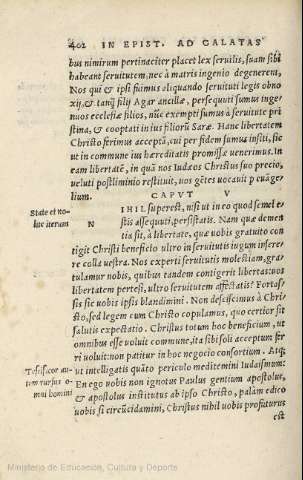 402 IN EPIST. AD GALATAS
bus nimirum pertinaciter placet lex seruilis, suam sibi
habeant seruitutem, nec à matris ingenio degenerent,
Nos qui & ipsi fuimus aliquando seruituti legis obno
xij, & tanq̃ filij Agar ancillæ, persequuti sumus inge-
nuos ecclesiæ filios, nũc exempti sumus à seruitute pri
stina, & cooptati in ius filiorũ Saræ. Hanc libertatem
Christo ferimus acceptã, cui per fidem sumus insiti, sic
ut in commune ius hæreditatis promissæ uenerimus. In
eam libertatẽ, in quã nos Iudæos Christus suo precio,
ueluti postliminio restituit, nos gẽtes uocauit p euãge-
lium. CAPVT V
State et no-
lite iterum
NIHIL superest, nisi ut in eo quod semel e-
stis assequuti, persistatis. Nam quæ demen-
tia sit, à libertate, quæ uobis gratuito con
tigit Christi beneficio ultro in seruitutis iugum insere-
re colla uestra. Nos experti seruitutis molestiam, gra-
tulamur nobis, quibus tandem contigerit libertas: uos
libertatem pertesi, ultro seruitutem affectatis? Fortas-
sis sic uobis ipsis blandimini. Non desciscimus à Chri-
sto, sed legem cum Christo copulamus, quo certior sit
salutis expectatio. Christus totum hoc beneficium, ut
omnibus esse uoluit commune, ita sibi soli acceptum fer
ri uoluit: non patitur in hoc negocio consortium. Atq;
ut intelligatis quãto periculo meditemini Iudaismum:
Testificor au-
tem rursus o-
mni homini
En ego uobis non ignotus Paulus gentium apostolus,
& apostolus institutus ab ipso Christo, palàm edico
uobis si circũcidamini, Christus nihil uobis profuturus
est
Ministerio de Educación, Cultura y Deporte